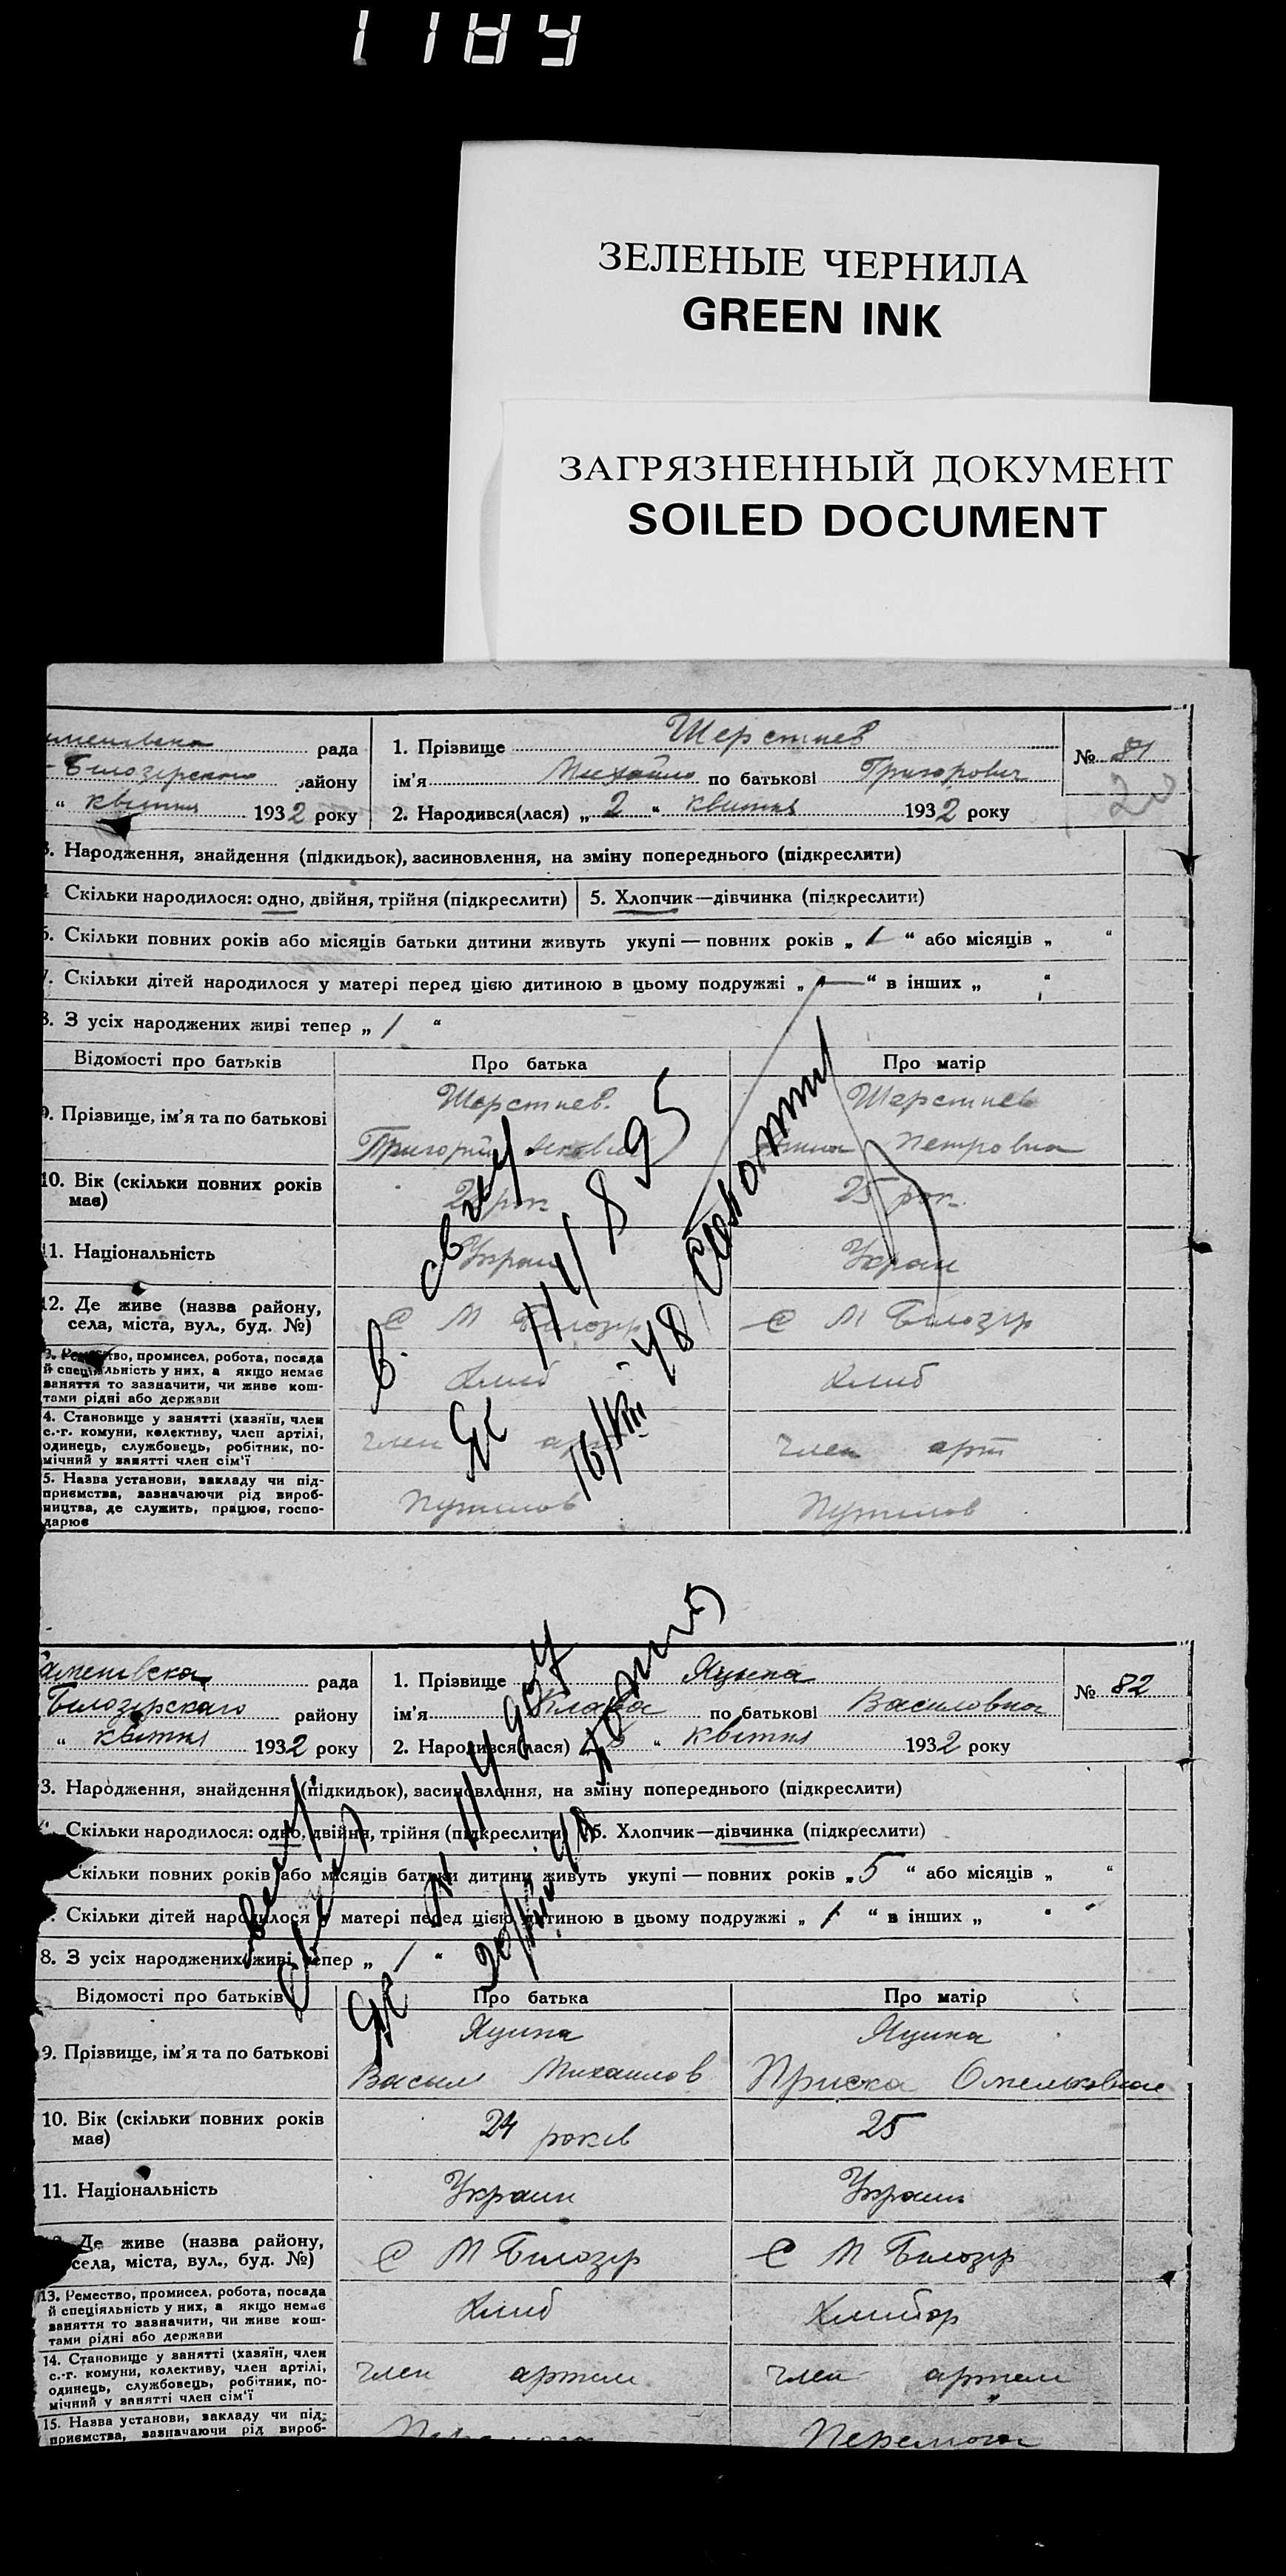 ЗЕЛЕНЫЕ ЧЕРНИЛА
GREEN INK
ЗАГРЯЗНЕННЫЙ ДОКУМЕНТ
SOILED DOCUMENT
рада
Білозірского району
" квітня 1932 року
1. Прізвище Шерстнев
ім'я Михайло по батькові Григорович
2. Народився(лася) „ 2 " квітня 1932 року
№ 81
20
3. Народження, знайдення (підкидьок), засиновлення, на зміну попереднього (підкреслити)
Скільки народилося: одно, двійня, трійня (підкреслити) 5. Хлопчик—дівчинка (підкреслити)
6. Скільки повних років або місяців батьки дитини живуть укупі — повних років „ 1 “ або місяців „ “
7. Скільки дітей народилося у матері перед цією дитиною в цьому подружжі „ — “ в інших „ “
8. З усіх народжених живі тепер „ 1 “
Відомості про батьків Про батька Про матір
9. Прізвище, ім'я та по батькові
Шерстнев. Шерстнев
Григорий Петровна
10. Вік (скільки повних років має)
рок 25 рок.
11. Національність
Украи Украи
12. Де живе (назва району, села, міста, вул., буд. №)
С М Білозір С М Білозір
13. Ремество, промисел, робота, посада
й спеціяльність у них, а якщо немає
заняття то зазначити, чи живе кош-
тами рідні або держави
Хліб Хліб
4. Становище у занятті (хазяїн, член
с.-г. комуни, колективу, член артілі,
одинець, службовець, робітник, по-
мічний у занятті член сім'ї
член арт член арт
5. Назва установи, закладу чи під-
приємства, зазначаючи рід вироб-
ництва, де служить, працює, госпо-
дарює
Путилов Путилов
16/VIII 48
рада
Білозірскаго району
" квітня 1932 року
1. Прізвище Яцина
ім'я Клавa по батькові Василовна
2. Народився(лася) " квітня 1932 року
№ 82
3. Народження, знайдення (підкидьок), засиновлення, на зміну попереднього (підкреслити)
Скільки народилося: одно, двійня, трійня (підкреслити) 5. Хлопчик—дівчинка (підкреслити)
Скільки повних років або місяців батьки дитини живуть укупі — повних років „ 5 “ або місяців „ “
Скільки дітей народилося у матері перед цією дитиною в цьому подружжі „ 1 “ в інших „ “
8. З усіх народжених живі тепер „ 1 “
Відомості про батьків Про батька Про матір
9. Прізвище, ім'я та по батькові
Яцина Яцина
Василь Михаилов Приска Омельковна
10. Вік (скільки повних років має)
24 років 25
11. Національність
Украин Украин
Де живе (назва району, села, міста, вул., буд. №)
С М Білозір С М Білозір
13. Ремество, промисел, робота, посада
й спеціяльність у них, а якщо немає
заняття то зазначити, чи живе кош-
тами рідні або держави
Хліб Хлибор
14. Становище у занятті (хазяїн, член
с.-г. комуни, колективу, член артілі,
одинець, службовець, робітник, по-
мічний у занятті член сім'ї
член артели член артели
15. Назва установи, закладу чи під-
приємства, зазначаючи рід вироб-
Перемога